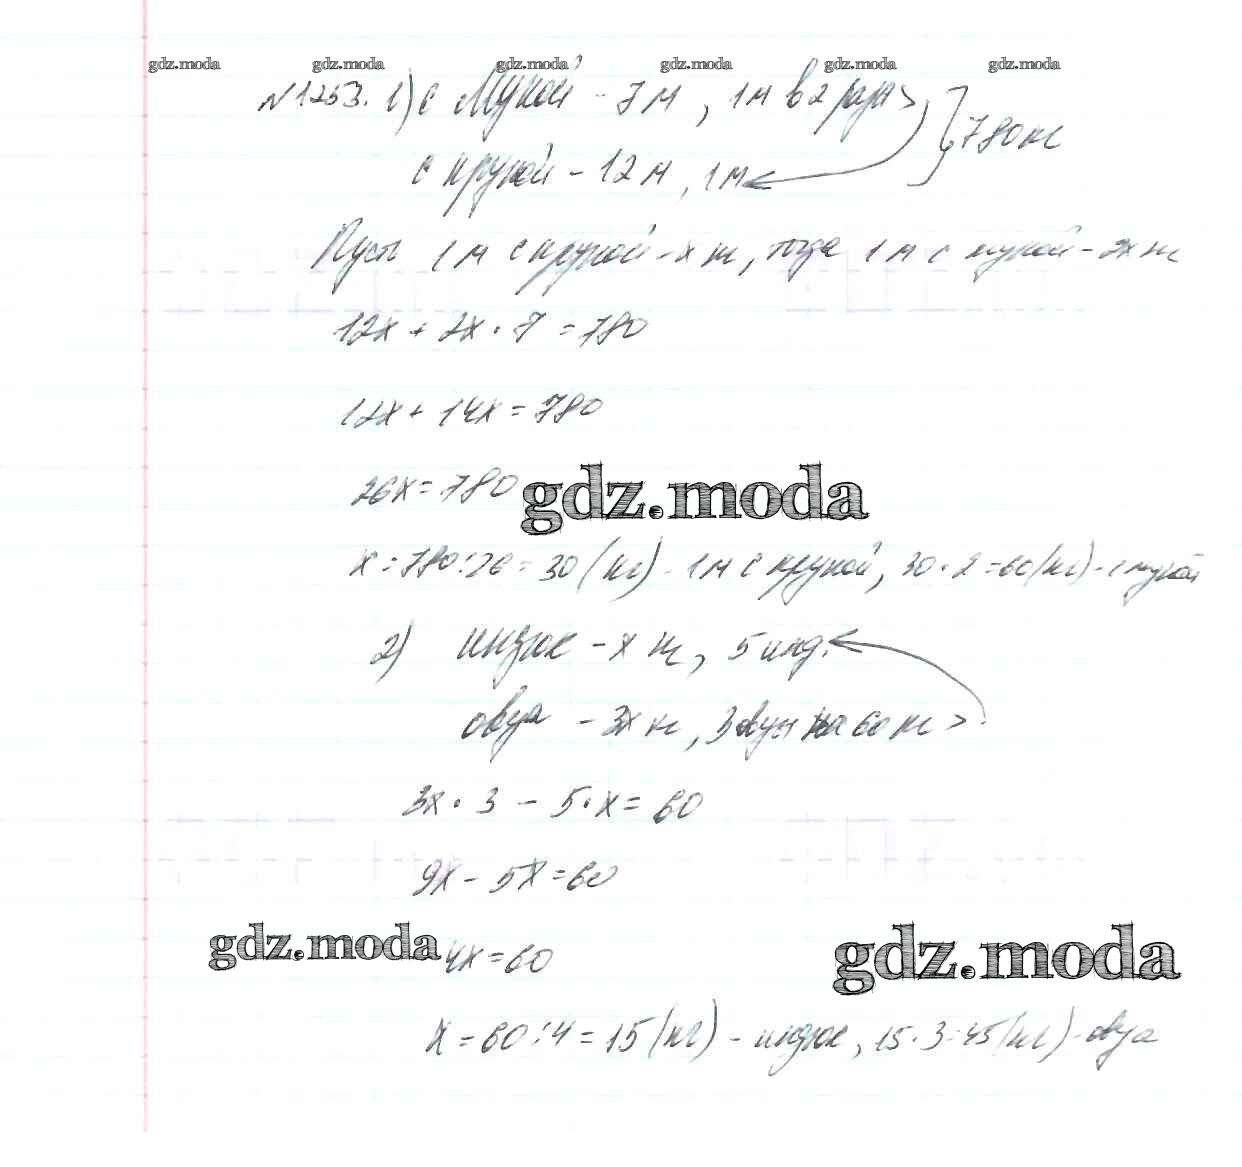 gdz.moda gdz.moda gdz.moda gdz.moda gdz.moda gdz.moda
№1253. 1) с мукой - 7 м, 1 м в 2 раза > } 780 кг
с крупой - 12 м, 1 м
Пусть 1 м с крупой - x кг, тогда 1 м с мукой - 2x кг
12x + 2x · 7 = 780
12x + 14x = 780
26x = 780
gdz.moda
x = 780 : 26 = 30 (кг) - 1 м с крупой, 30 · 2 = 60 (кг) - с мукой
2) индюк - x кг, 5 инд.
овца - 3x кг, 3 овцы на 60 кг >
3x · 3 - 5 · x = 60
9x - 5x = 60
gdz.moda 4x = 60 gdz.moda
x = 60 : 4 = 15 (кг) - индюк, 15 · 3 = 45 (кг) - овца